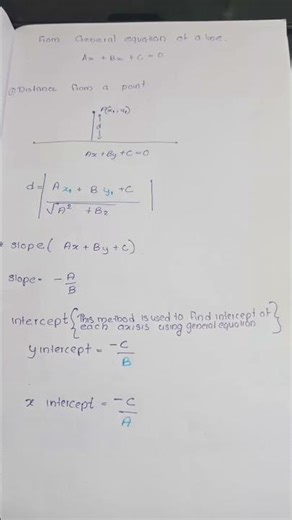 From General equation of a line.
Ax + Bx + C = 0
① Distance from a point
P(x₁, y₁)
d
Ax + By + C = 0
d = | A x₁ + B y₁ + C / √A² + B₂ |
slope ( Ax + By + C )
slope = -A/B
intercept { This method is used to find intercept of
each axisis using general equation }
y intercept = -C/B
x intercept = -C/A